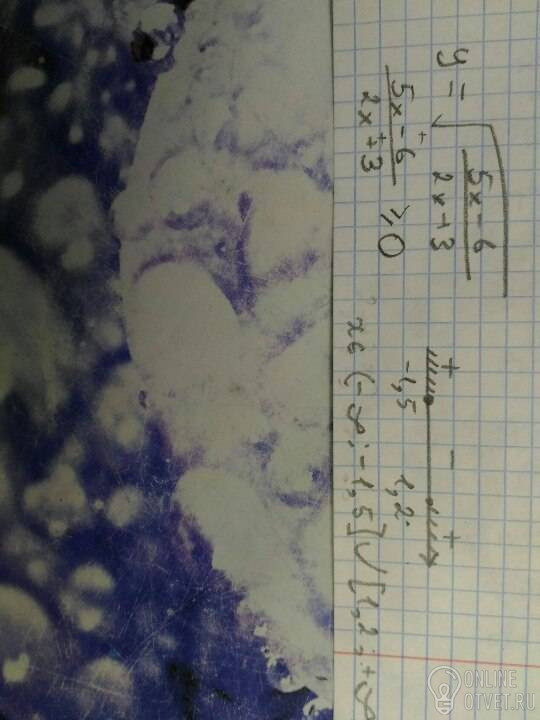 y = √(5x-6 / 2x+3)
5x-6 / 2x+3 ≥ 0
+ - +
-1,5 1,2
x∈(-∞; -1,5]∪[1,2; +∞
ONLINE
OTVET.RU